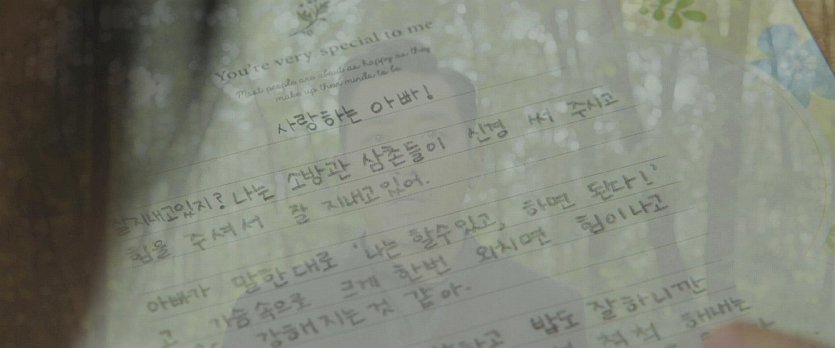 You're very special to me
Most people are about as happy as they
make up their minds to be
사랑하는 아빠!
잘지내고있지? 나는 소방관 삼촌들이 신경 써 주시고
힘을 주셔서 잘 지내고있어.
아빠가 말한대로 '나는 할수있고, 하면 된다!'
고 가슴속으로 크게 한번 외치면 힘이나고
강해지는것 같아.
밥도 잘하니깐
척척 해내는